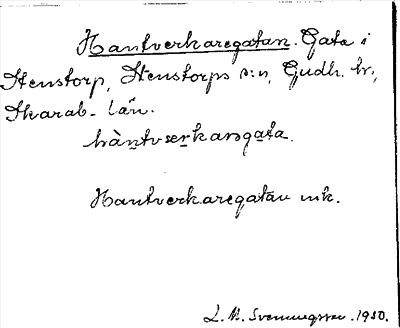 Hantverkaregatan. Gata i
Stenstorp, Stenstorps s:n, Gudh. hr,
Skarab. län.
hàntvserkarsgata.
Hantverkaregatan mk.
L. M. Svenungsson. 1930.